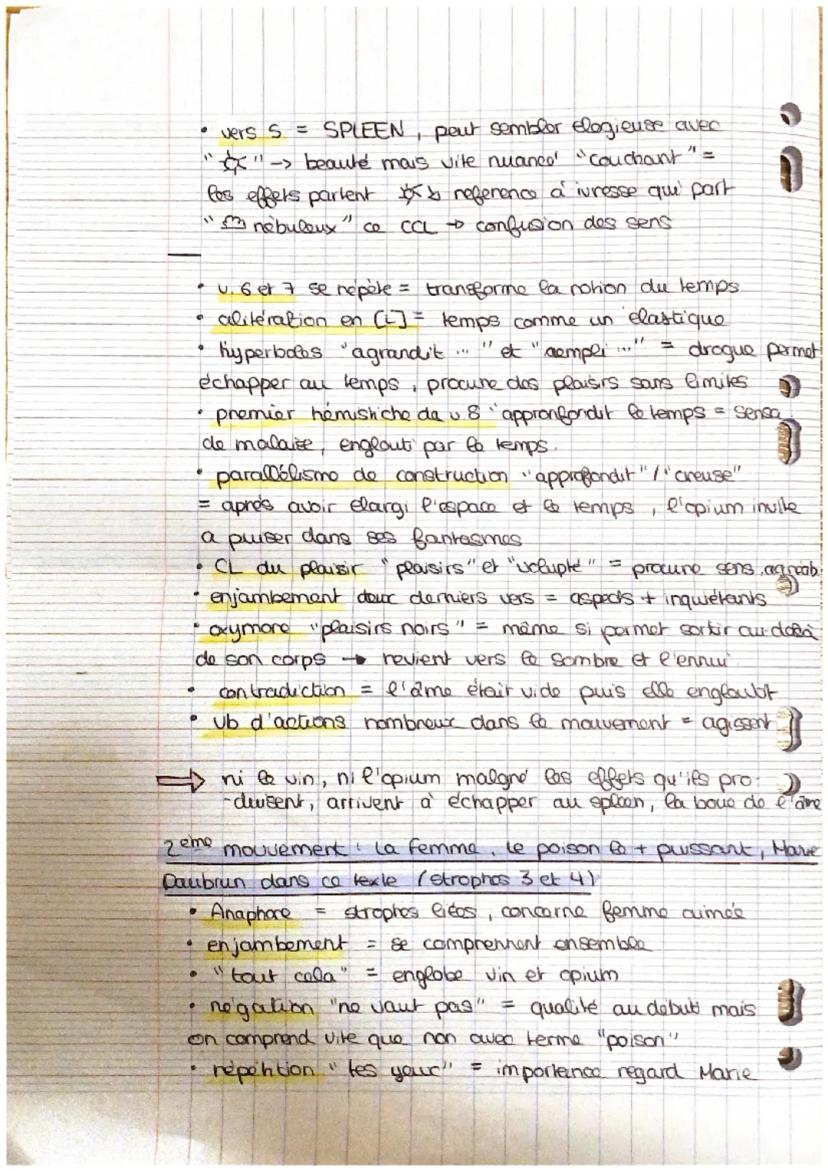 • vers 5 = SPLEEN, peut sembler élogieuse avec
"☼" -> beauté mais vite nuancé "couchant" =
les effets partent ☼↳ reference à ivresse qui part
"☁ nébuleux" ce CCL → confusion des sens
• v. 6 et 7 se répète = transforme la notion du temps
• alitération en [L] = temps comme un élastique
• hyperboles "agrandit ..." et "rempli ..." = drogue permet
échapper au temps, procure des plaisirs sans limites
• premier hémistiche du v 8 "appronfondit le temps = sensa.
de malaise, englouti par le temps.
• parallélisme de construction "approfondit" / "creuse"
= après avoir élargi l'espace et le temps, l'opium invite
a puiser dans ses fantasmes
• CL du plaisir "plaisirs" et "volupté" = procure sens. agréab.
• enjambement deux derniers vers = aspects + inquiétants
• oxymore "plaisirs noirs" = même si permet sortir au-delà
de son corps → revient vers le sombre et l'ennui
• contradiction = l'âme était vide puis elle engloubt
• vb d'actions nombreux dans le mouvement = agissent
⇒ ni le vin, ni l'opium malgré les effets qu'ils pro-
-duisent, arrivent à échapper au spleen, la boue de l'âme
2eme mouvement : la femme, le poison le + puissant, Marie
Daubrun dans ce texte (strophes 3 et 4)
• Anaphore = strophes liées, concerne femme aimée
• enjambement = se comprennent ensemble
• "tout cela" = englobe vin et opium
• négation "ne vaut pas" = qualité au début mais
on comprend vite que non avec terme "poison"
• répétition "tes yeux" = importance regard Marie